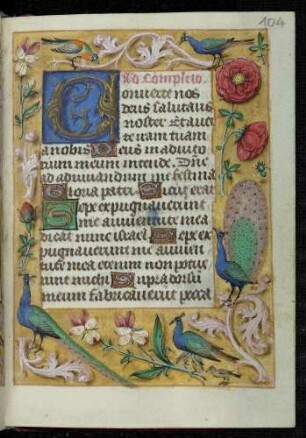 104
Ad Completo.
Conuerte nos
deus salutaris
noster Et auer
te iram tuam
a nobis Deus in adiuto
rium meum intende. Dñe
ad adiuuandum me festina
Gloria patri. Sicut erat
Sepe expugnauerunt
me a iuuentute mea
dicat nunc israel. Sepe ex
pugnauerunt me a iuuen
tute mea etenim non potue
runt michi Supra dorsu
meum fabricauerut pecca